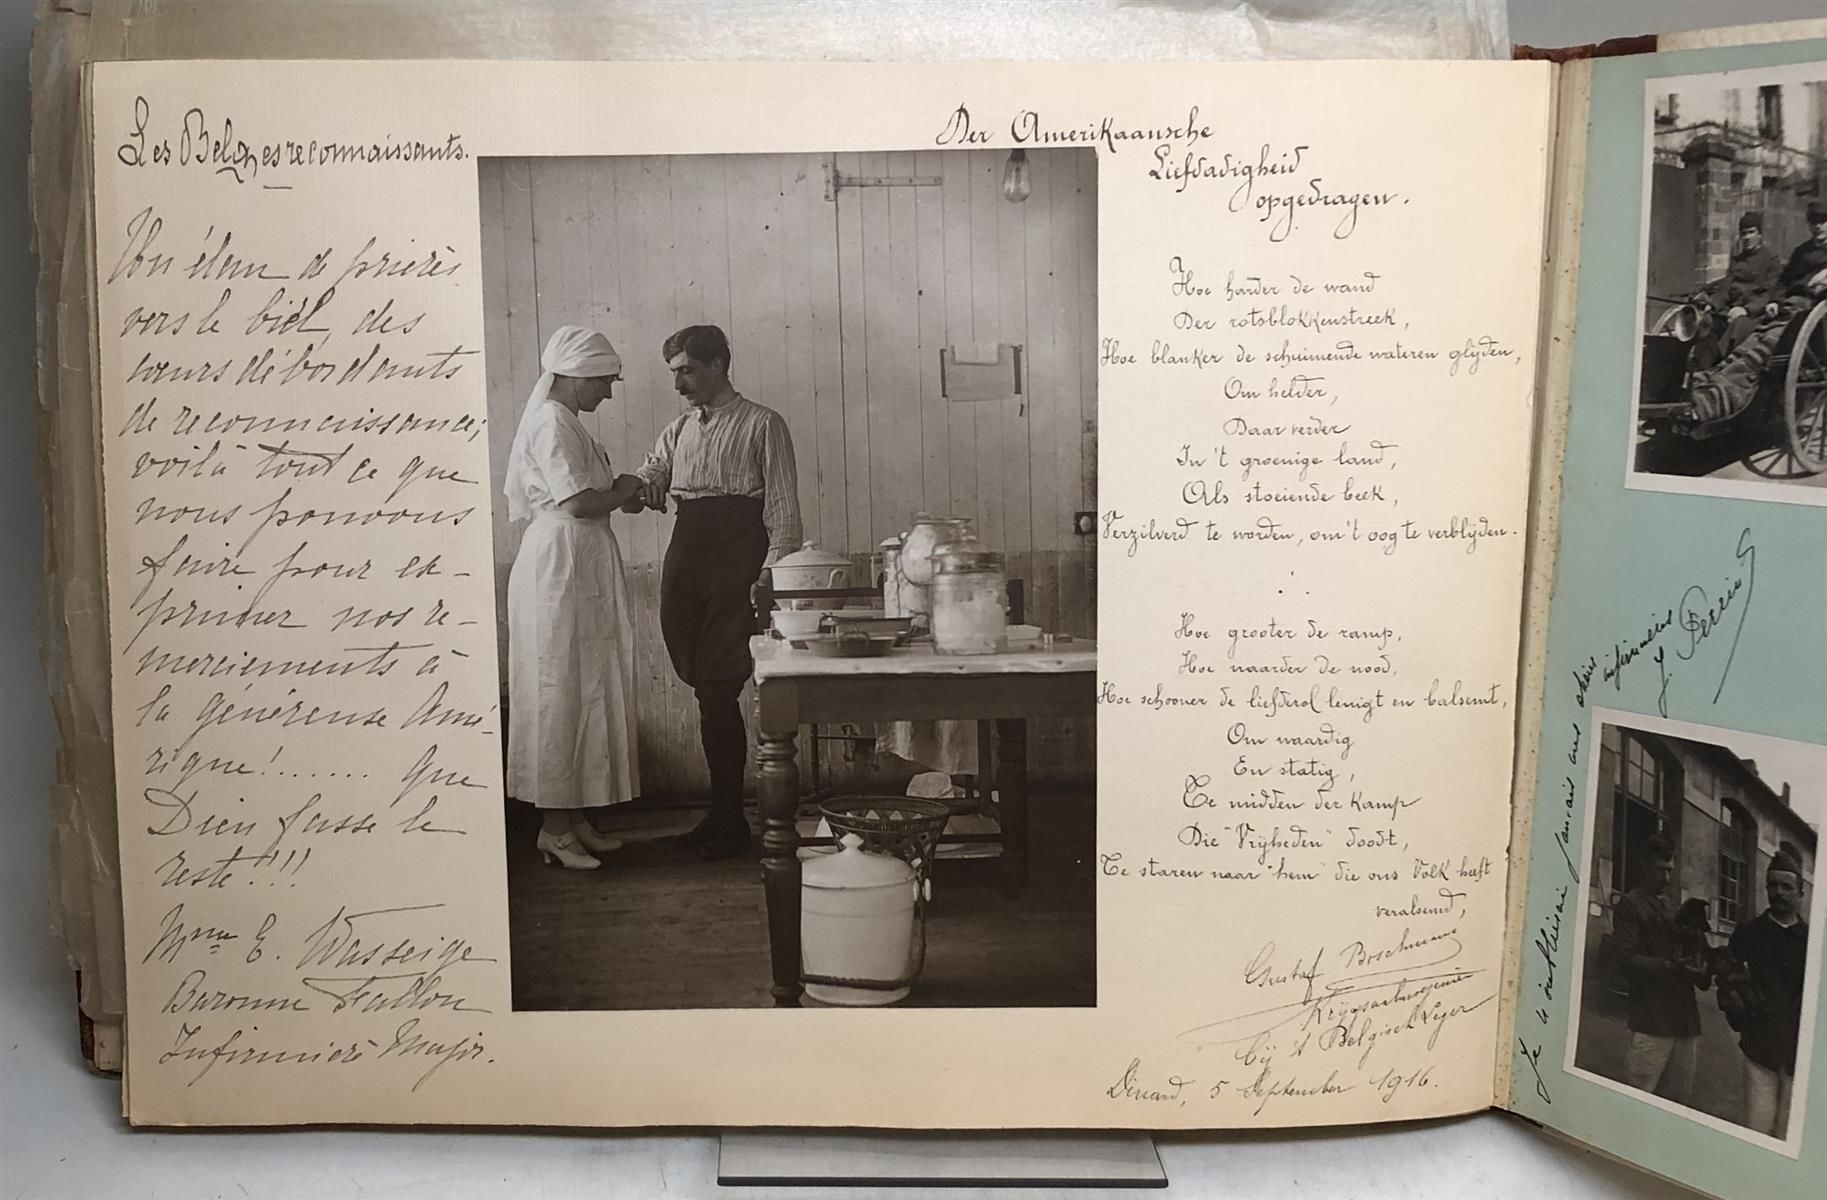 Les Belges reconnaissants.
Un élan de prières
vers le ciel, des
cœurs débordants
de reconnaissance;
voilà tout ce que
nous pouvons
faire pour ex-
primer nos re-
merciements à
la généreuse Amé-
rique!...... Que
Dieu fasse le
reste!!!
Mme E. Wasseige
Baronne Fallon
Infirmière Major.
Der Amerikaansche
Liefdadigheid
opgedragen.
Hoe harder de wand
Der rotsblokkenstreek,
Hoe blanker de schuimende wateren glijden,
Om helder,
Daar verder
In 't groenige land,
Als stoeiende beek,
Verzilverd te worden, om 't oog te verblijden.
Hoe grooter de ramp,
Hoe naarder de nood,
Hoe schooner de liefderol lenigt en balsemt,
Om waardig
En statig,
Te midden der kamp
Die "Vrijheden" doodt,
Te staren naar "hem" die ons Volk heeft
veralsemd,
Gustaf Boschmans
bij 't Belgisch Leger
Dinard, 5 September 1916.
Je n'oublierai jamais mes chères infirmières
J. Perrin